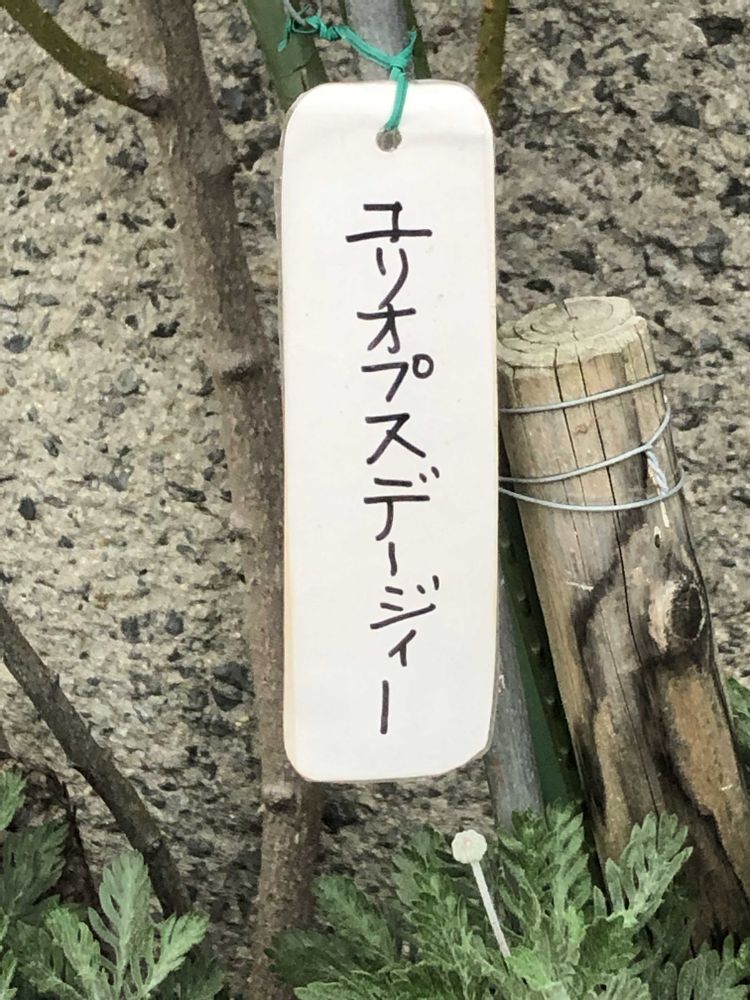 ユリオプスデージィー